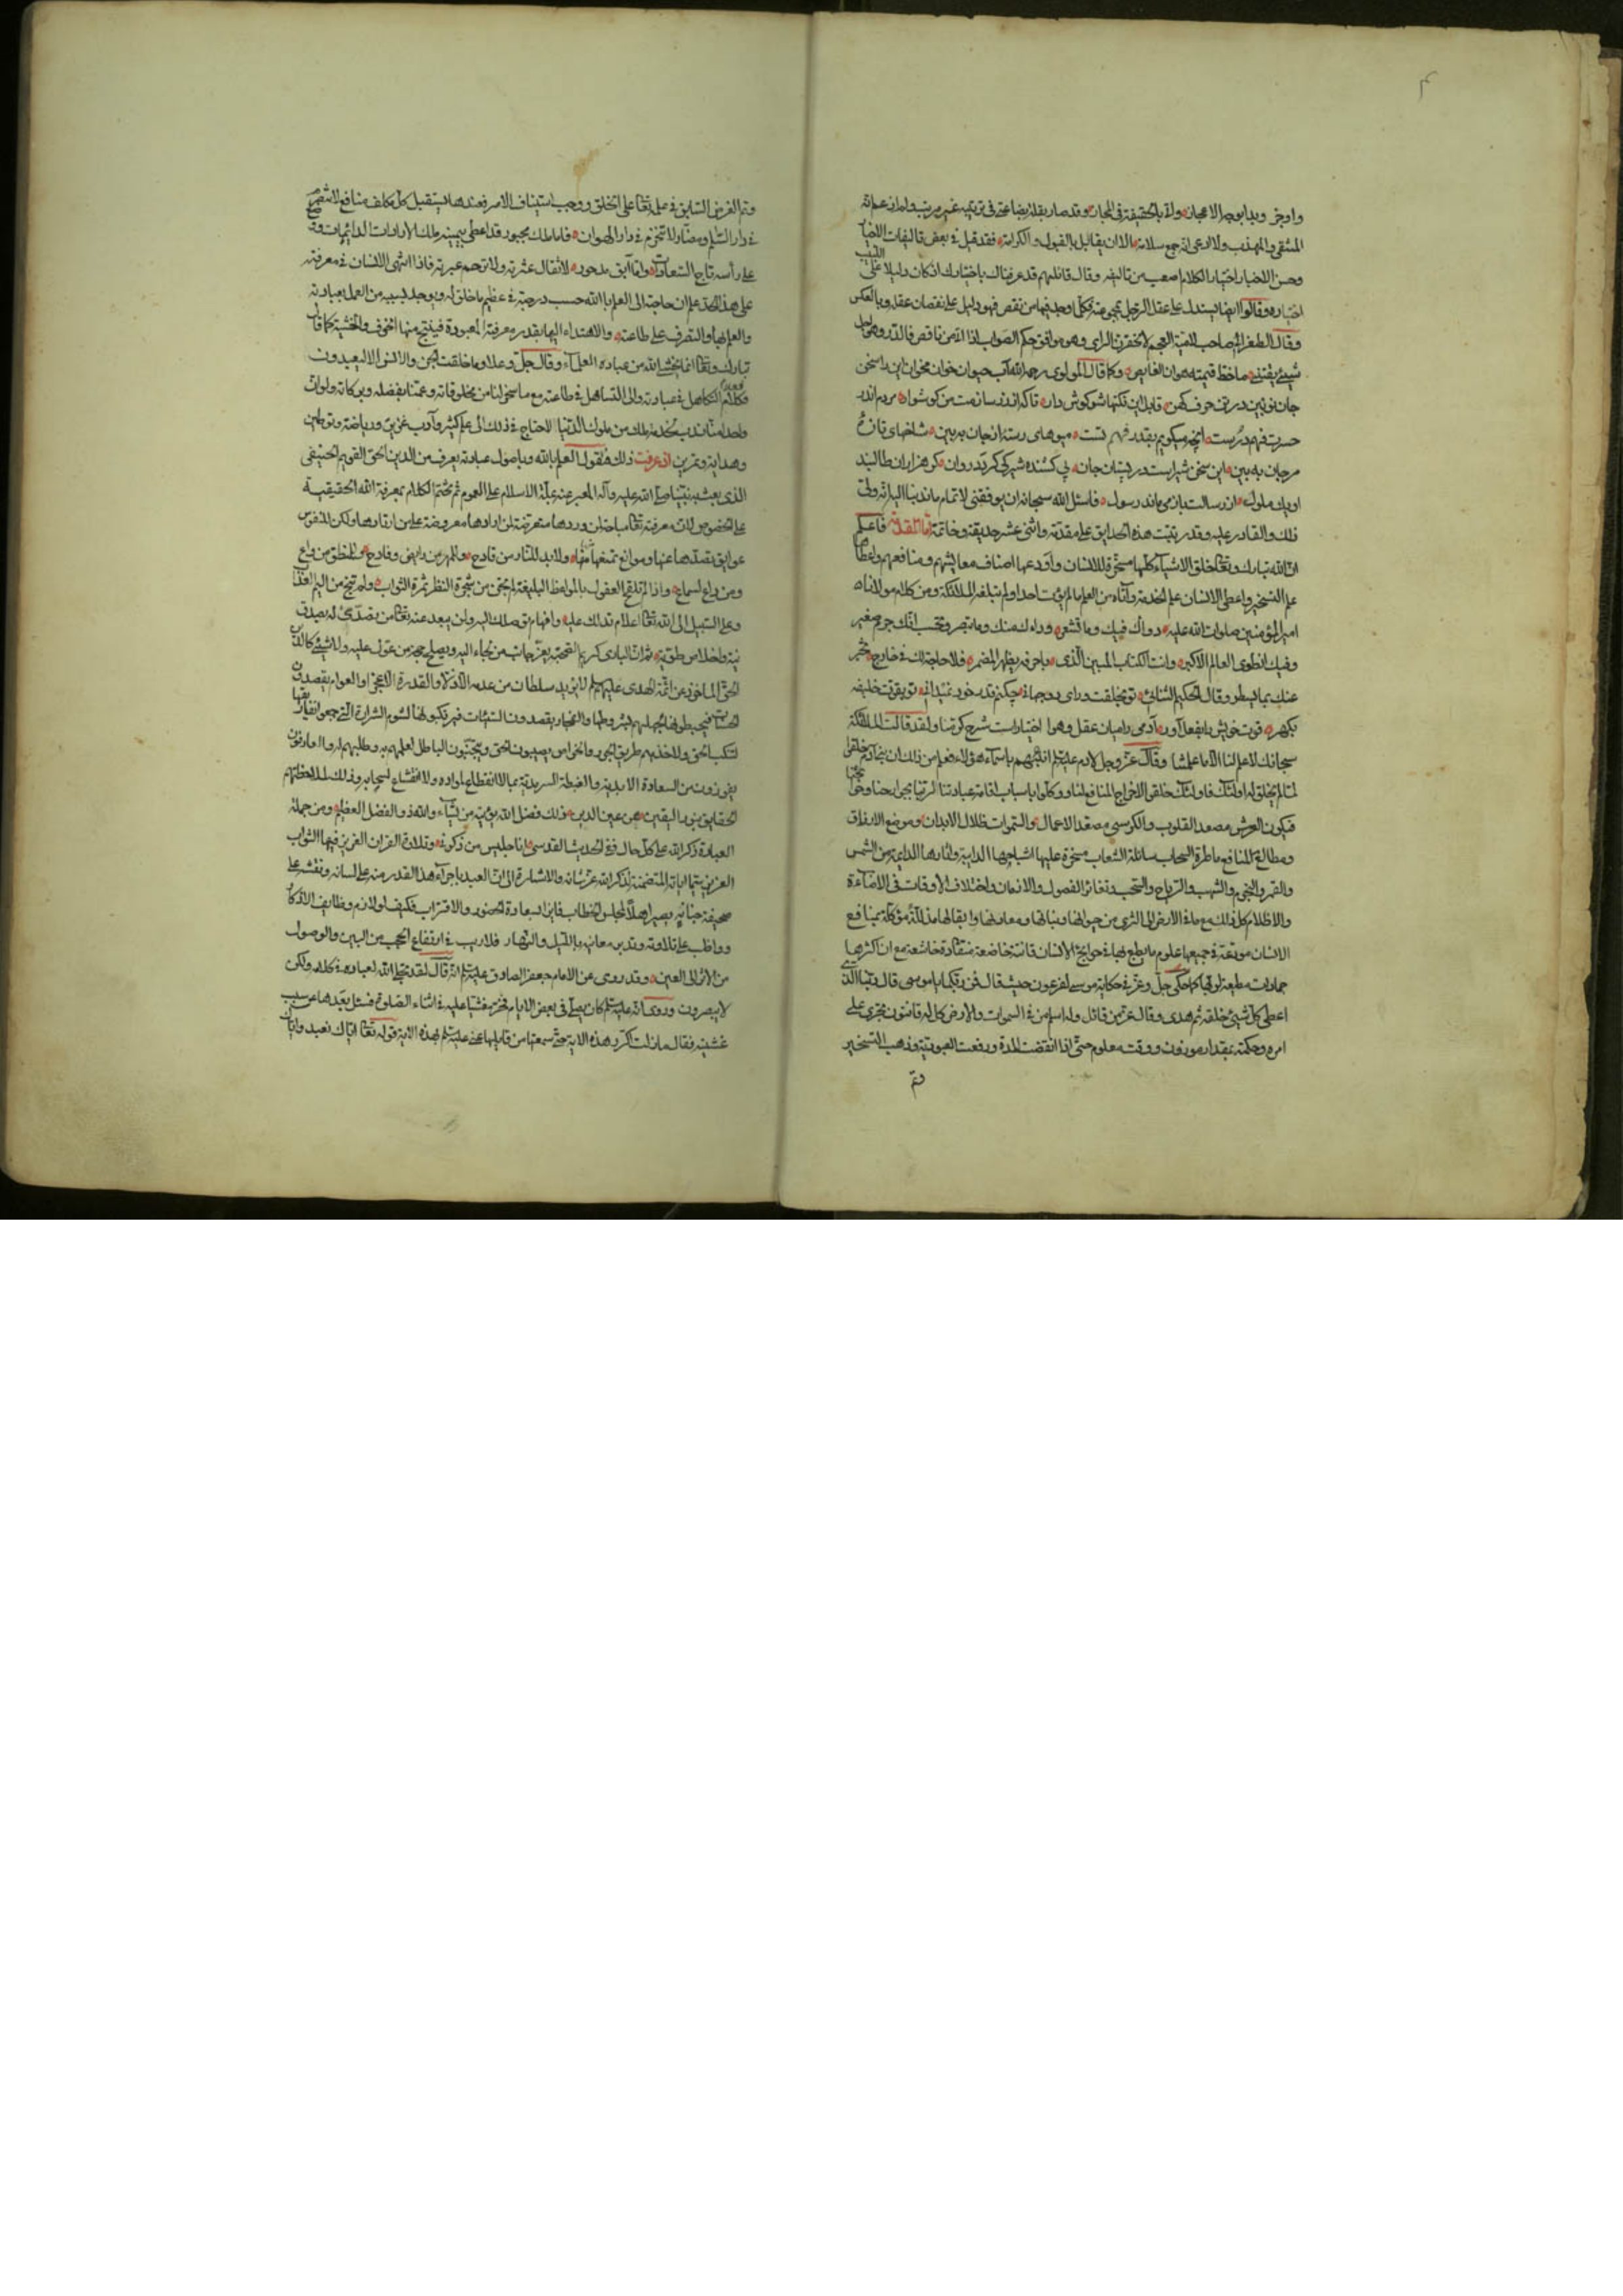 ۳
واوخر وبدا بوجه الاعجاز ولاة بالحقيقة في المجاز وقد صار بقلة بضاعتي في ترتيبه غير مرتب ولم اذعم انه
المنتقى والمهذب ولا ادعى انه جمع سلامة الا ان يقابل بالقبول والكرامة فقد قيل في بعض تاليفات
وحسن الاختيار اختيار الكلام اصعب من تاليفه وقال قائلهم قد عرفناك باختيارك اذ كان دليلا على اللبيب
اختياره وقالوا ايضا يستدل على عقل الرجل فكلما وجد فيها من نقص فهو دليل على نقصان عقله وبالعكس
وقال الطغرائي صاحب لامية العجم لا تحقرن الراى وهو موافق حكم الصواب اذا اتى من ناقص فالدر وهو اجل
شيئ يقتنى ما حط قيمته هوان الغايص وكما قال المولوى رحمه الله آب حيوان خوان مخوان اين را سخن
جان نو بين در تن حرف كهن قابل اين نكتها شو كوش دار تا كه از زر سازمت من كوشوار مردم اندر
حسرت فهم درست آنچه ميكويم بقدر فهم تست ميوهاى رسته از جان به ببين شاخهاى تازه
مرجان به ببين اين سخن شير است در پستان جان بى كشنده شير كى كردد روان كر هزاران طالبند
او يك ملول از رسالت باز مى ماند رسول فاسئل الله سبحانه ان يوفقنى لاتمام ما ندبنا اليه انه ولى
ذلك والقادر عليه وقد رتبت هذه الحدايق على مقدمة واثنى عشر حديقة وخاتمة اما المقدمة فاعلم
ان الله تبارك وتعالى خلق الاشياء كلها مسخرة للانسان واودعها اصناف معايشهم ومنافعهم واعطاها
علم التسخير واعطى الانسان علم الخدمة وآتاه من العلم ما لم يؤت احدا ولم تبلغه الملائكة ومن كلام مولاناه
امير المؤمنين صلوات الله عليه دوائك فيك وما تشعر وداءك منك وما تبصر وتحسب انك جرم صغير
وفيك انطوى العالم الاكبر وانت الكتاب المبين الذى باحرفه يظهر المضمر فلا حاجة لك في خارج يخبر
عنك بما يسطر وقال الحكيم السنائى تو بخلقت وراى دو جهانى چكنم قدر خود نميدانى تو بقوت خليفه
بكهر قوت خويش را بفعل آور آدمى را ميان عقل وهوا اختيار است شرح كرمنا ولقد قالت الملائكة
سبحانك لا علم لنا الا ما علمتنا وقال عز وجل لادم عليه السلام انبئهم باسماء هؤلاء فعلم من ذلك ان بنى آدم خلقوا
لما لم يخلق له اولئك فاولئك خلقوا لاخراج المنافع لنا ووكلوا باسباب اقامة عبادتنا لربنا
فيكون العرش مصعد القلوب والكرسى مصعد الاعمال والسموات ظلال الابدان وموضع الارفاق
ومطالع المنافع ماطرة السحاب سائلة الشعاب مسخرة عليها اشباحها الدايبة وانارها الدايمة من الشمس
والقمر والنجم والشهب والرياح والسحب وتغائر الفصول والازمان واختلاف الاوقات في الاضاءة
والاظلام كل ذلك مع ما في الارض الى الثرى من حيوانها ونباتها ومعادنها وابقالها مذللة موكلة بمنافع
الانسان مودعة في جميعها علوم ما يطبع لها في حوايج الانسان قانتة خاضعة منقادة خاشعة مع ان اكثرها
جمادات مطيعة لربها كما حكى جل وعز في حكاية موسى لفرعون حيث قال فمن ربكما يا موسى قال ربنا الذى
اعطى كل شيئ خلقه ثم هدى وقال عز من قائل وله اسلم من في السموات والارض كل له قانتون تجرى على
امره وحكمته بمقدار موزون ووقت معلوم حتى اذا انقضت المدة ورفعت العبودية وذهب التسخير
وتم
وتم الغرض السابق في علمه تعالى على الخلق ووجب استيناف الامر فعندها يستقبل كل مكلف منافع لا تنصرم
في دار السلم ومضار لا تنخرم في دار الهوان فاما ملك مجبور قد اعطى بيمينه ملك الارادات الدائمات
على رأسه تاج السعادات واما آبق مدحور لا تقال عثرته ولا ترحم عبرته فاذا انتهى الانسان في معرفته
على هذا الحد علم ان حاجته الى العلم بالله حسب درجته في عظيم ما خلق له ويوجد بسببه من العمل بعبادته
والعلم بها والتصرف على طاعته والاهتداء اليها بقدر معرفته المعبودة فينتج منها الخوف والخشية كما قال
تبارك وتعالى انما يخشى الله من عباده العلماء وقال جل وعلا وما خلقت الجن والانس الا ليعبدون
فكلام التكاهل في عبادته والى التساهل في طاعته مع ما سخر لنا من مخلوقاته وعمنا بفضله وبركاته ولو ان
واحدا منا ندب لخدمة ملك من ملوك الدنيا لاحتاج في ذلك الى علم كثير وآداب غزير ورياضة وتوطين
وهداية وتمرين اذا عرفت ذلك فنقول العلم بالله وباصول عبادته يعرف من الدين الحق القويم الحنيفى
الذى بعث به نبينا صلى الله عليه وآله المعبر عنه بملة الاسلام على العموم ثم يختم الكلام بمعرفة الله الحقيقية
على الخصوص لان معرفته تعالى مباحة لمن وردها متعرضة لمن ارادها معروضة على من ارتادها ولكن للنفوس
عوايق تصدها عنها وموانع تمنعها منها ولا بد للنار من قادح وللمهر من رايض وفادح وللمنطق من داع
ومن داع لسماع واذا لم تلقح العقول بالمواعظ البليغة لم يجن من شجرة النظر ثمرة الثواب ولم تنج من اليم العذاب
وعلى السبيل الى الله تعالى اعلام تدلك عليه وافهام توصلك اليه ولن يبعد عنه تعالى من يتصدى له بصدق
نية واخلاص طوية ثم ان البارى كريم الصحبة يعز جناب من لجاء اليه ويصلح حجة من عول عليه ولا شيئ كالدين
الحق الماخوذ عن ائمة الهدى عليهم السلام
لتنكب الحق ولاخذهم طريق الجور والخواص يصيبون الحق ويجتنبون الباطل لعلمهم به وطلبهم له والعارفون
يفوزون من السعادة الابدية والغبطة السرمدية بما لا انقطاع لمواده ولا انقشاع لسحابه وذلك لملاحظتهم
الحقايق بنور اليقين من عين الدين وذلك فضل الله يؤتيه من يشاء والله ذو الفضل العظيم ومن جملة
العبادة ذكر الله على كل حال ففي الحديث القدسى انا جليس من ذكرنى وتلاوة القران العزيز فيها الثواب
العزيز سيما اياته المتضمنة لذكر الله عز شانه والاشارة الى ان العبد باجراء هذا القدر منه على لسانه ونقشه على
صحيفة جنانه يصير اهلا لمجلس الخطاب فاز بالسعادة الحضور والاقتراب فكيف لو لازم وظايف الاذكار
وواظب على تلاوته وتدبر معانيه بالليل والنهار فلا ريب في ارتفاع الحجب من البين والوصول
من الاثر الى العين وقد روى عن الامام جعفر الصادق عليه السلام انه قال لقد تجلى الله لعباده في كلامه ولكن
لا يبصرون وروى انه عليه السلام كان يصلى في بعض الايام فخر مغشيا عليه في اثناء الصلوة فسئل بعدها عن سبب
غشيته فقال ما زلت اكرر هذه الاية حتى سمعتها من قايلها عنى عليه السلام بهذه الاية قوله تعالى اياك نعبد واياك